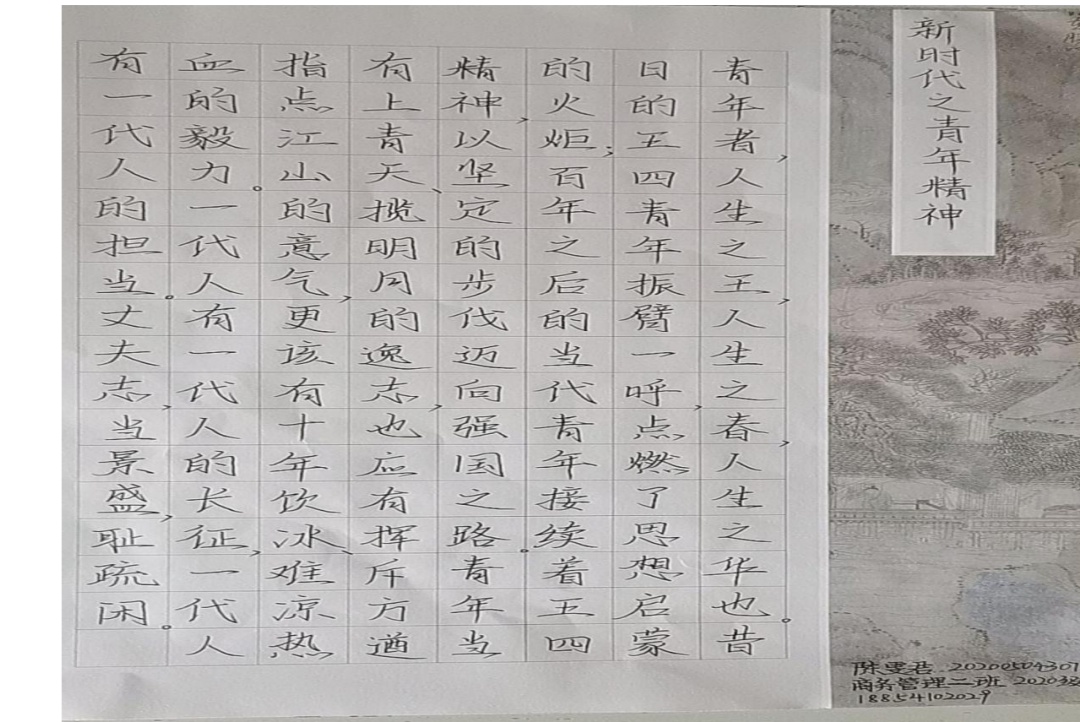 新时代之青年精神
青年者,人生之王,人生之春,人生之华也。昔
日的五四青年振臂一呼,点燃了思想启蒙
的火炬;百年之后的当代青年接续着五四
精神,以坚定的步伐迈向强国之路。青年当
有上青天、揽明月的逸志,也应有挥斥方遒
指点江山的意气,更该有十年饮冰、难凉热
血的毅力。一代人有一代人的长征,一代人
有一代人的担当。丈夫志,当景盛,耻疏闲。
陈雯君 20200504307
商务管理二班 2020级
18854102029